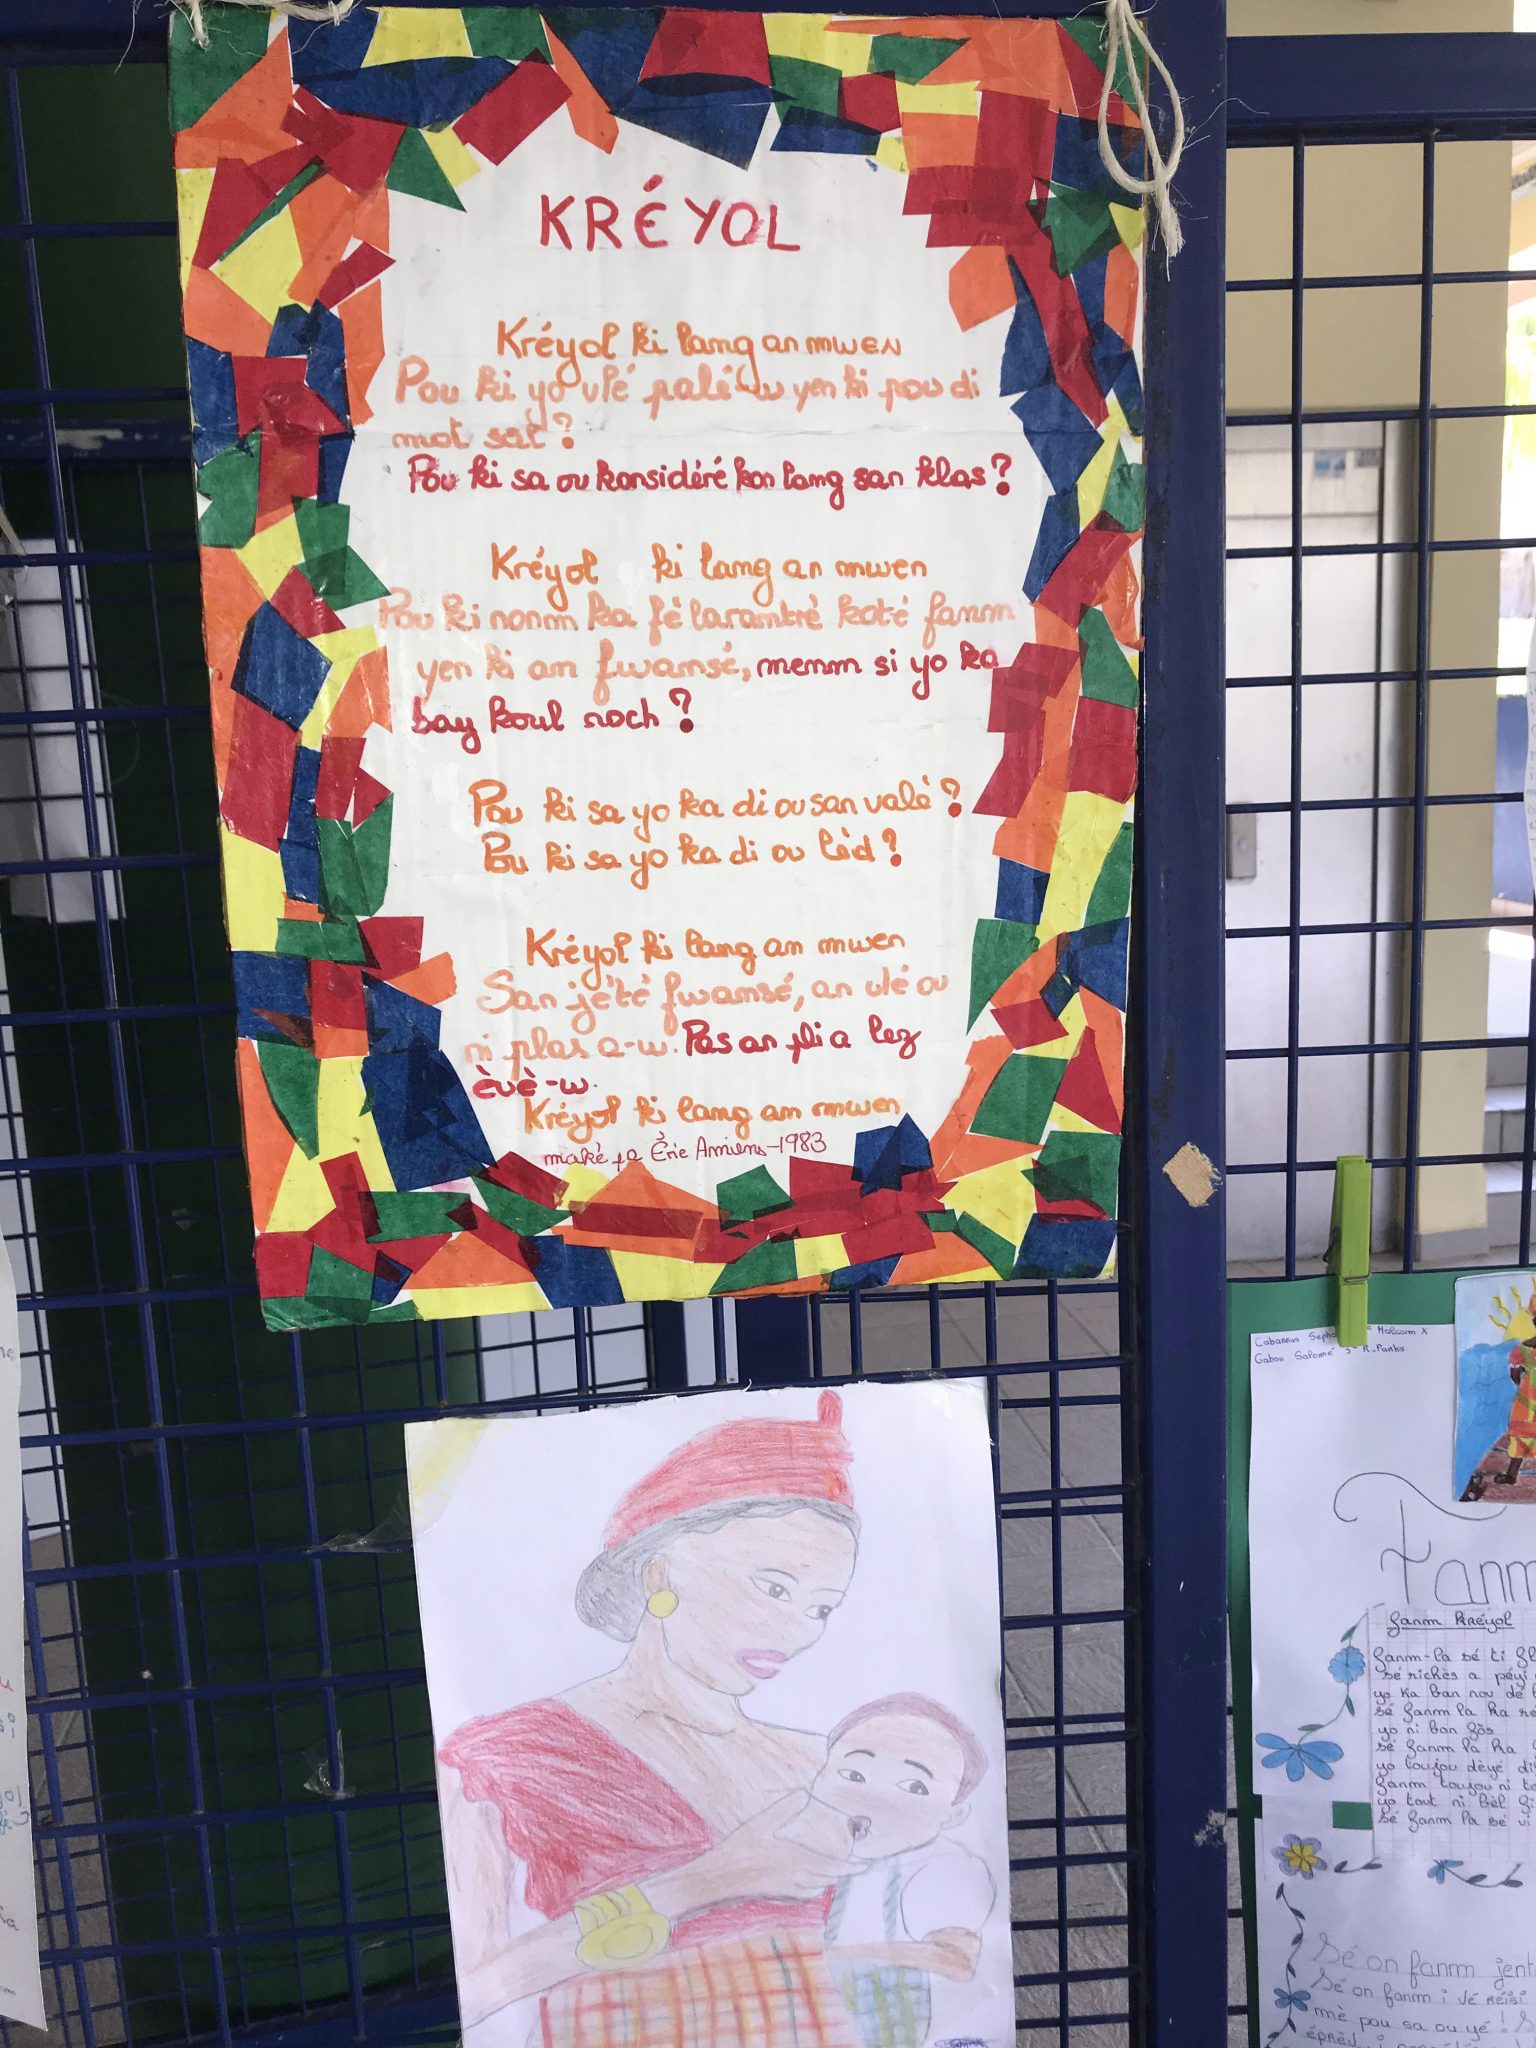 KRÉYOL
Kréyol ki lang an mwen
Pou ki yo vlé palé-w yen ki pou di
mot sat?
Pou ki sa ou konsidéré kon lang san klas?
Kréyol ki lang an mwen
Pou ki nonm ka fè larantré koté fanm
yen ki an fwansé, menm si yo ka
bay koul roch?
Pou ki sa yo ka di ou san valè?
Pou ki sa yo ka di ou lèd?
Kréyol ki lang an mwen
San jété fwansé, an vlé ou
ni plas a-w. Pas an pli a lez
èvè-w.
Kréyol ki lang an mwen
maké pa Éric Amiens-1983
Cabarrus Malcom X
Gabon Salomé 3e R-Parks
Fanm
Fanm kréyol
Fanm-la sé ti
sé richès a péyi
yo ka ban nou dé
sé fanm la ka
yo ni bon gòs
sé fanm la ka
yo toujou dèyè
fanm toujou ni
yo tout ni bèl
Sé fanm la sé
Sé on fanm
Sé on fanm i vé réisi
mè pou sa ou yé!
éprèv